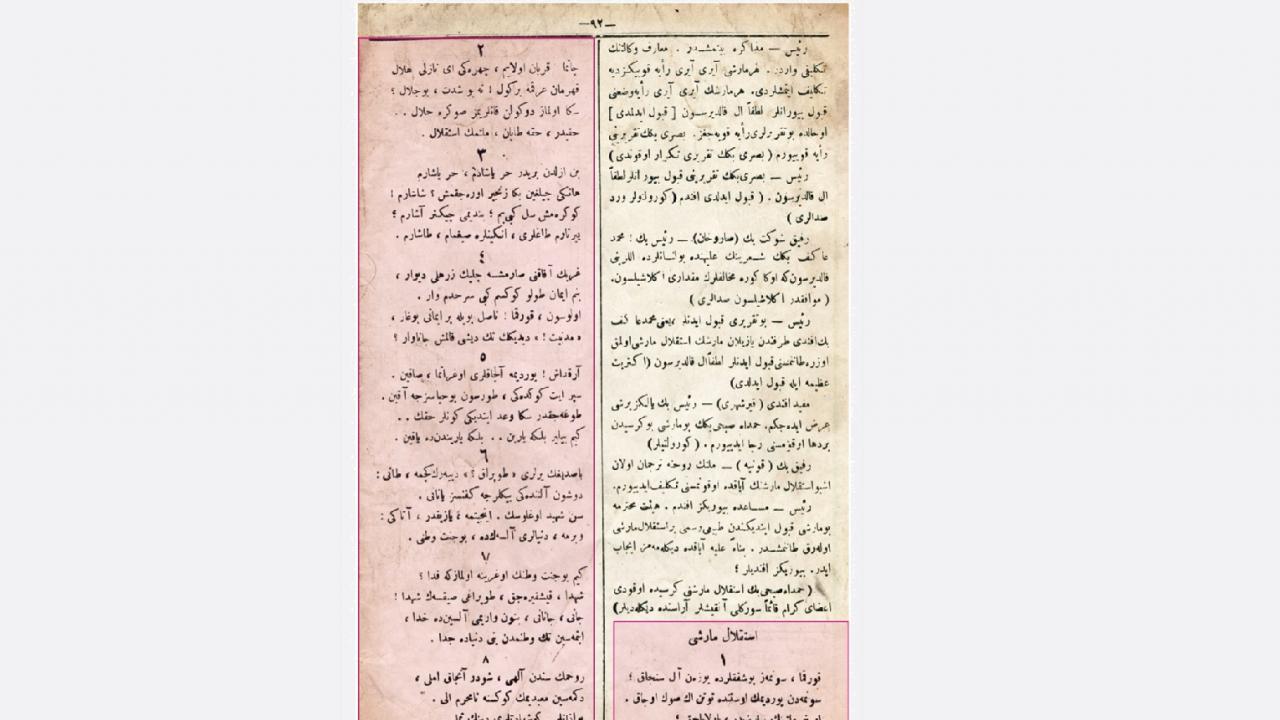 —٩٢—
رئيس — مذاكره بيتمشدر . معارف وكالتنك
تكليفى واردر . هرمارشى آيرى آيرى رأيه قويكز ديه
تكليف ايتمشلردى. هرمارشك آيرى آيرى رأيه وضعنى
قبول بيورانلر لطفاً ال قالديرسون [ قبول ايدلمدى ]
اوحالده بوتقريرلرى رأيه قويه جغز. بصرى بكك تقريرينى
رأيه قويييورم ( بصرى بكك تقريرى تكرار اوقوندى )
رئيس — بصرى بكك تقريرينى قبول بيورانلر لطفاً
ال قالديرسون . ( قبول ايدلدى افندم ( كورولتولر ورد
صدالرى )
رفيق شوكت بك (صاروخان) — رئيس بك ! محمد
عاكف بكك شعرينك عليهنده بولنانلرده اللرينى
قالديرسون كه اوكا كوره مخالفلرك مقدارى اكلاشيلسون.
( موافقدر اكلاشيلسون صدالرى )
رئيس — بوتقريرى قبول ايدنلر ، يعنى محمد عاكف
بك افندى طرفندن يازيلان مارشك استقلال مارشى اولمق
اوزره طاننمسنى قبول ايدنلر لطفاً ال قالديرسون (اكثريت
عظيمه ايله قبول ايدلدى)
مفيد افندى ( قيرشهرى) — رئيس بك يالكز برشى
عرض ايده جكم. حمدالله صبحى بكك بومارشى بوكرسيدن
بردها اوقومسنى رجا ايدييورم . ( كورولتيلر)
رفيق بك ( قونيه ) — ملتك روحنه ترجمان اولان
اشبو استقلال مارشنك آياقده اوقونمسنى تكليف ايدييورم.
رئيس — مساعده بيوريكز افندم . هيئت محترمه
بومارشى قبول ايتديكندن طبيعى رسمى بر استقلال مارشى
اوله رق طانمشدر . بناءً عليه آياقده ديكله مه من ايجاب
ايدر. بيوريكز افنديلر !
( حمدالله صبحى بك استقلال مارشنى كرسيده اوقودى
اعضاى كرام قائماً سوركلى آلقيشلر آراسنده ديكله ديلر)
استقلال مارشى
١
قورقما ، سونمز بوشفقلرده يوزن آل سنجاق ؛
سونمه دن يورديمك اوستنده توتن اك صوك اوجاق .
٢
چاتما قربان اولايم ، چهره كى اى نازلى هلال
قهرمان عرقمه بركول ! نه بو شدت ، بوجلال ؟
سكا اولماز دوكولن قانلريمز صوكره حلال . .
حقيدر ، حقه طاپان ، ملتمك استقلال .
٣
بن ازلدن بريدر حر ياشادم ، حر ياشارم
هانكى چيلغين بكا زنجير اوره جقمش ؟ شاشارم !
كوكره مش سل كبى يم ؛ بنديمى چيكنر آشارم ؛
ييرتارم طاغلرى ، انكينلره صيغمام ، طاشارم .
٤
غربك آفاقنى صارمشسه چليك زرهلى ديوار ،
بنم ايمان طولو كوكسم كبى سرحدم وار .
اولوسون ، قورقما ! ناصل بويله بر ايمانى بوغار ،
« مدنيت ! » ديديكك تك ديشى قالمش جاناوار ؟
٥
آرقداش ! يورديمه آلچاقلرى اوغراتما ، صاقين .
سپر ايت كوكده كى ، طورسون بوحياسزجه آقين .
طوغه جقدر سكا وعد ايتديكى كونلر حقك . .
كيم بيلير بلكه يارين . . بلكه ياريندن ده ياقين .
٦
باصديغك يرلرى « طوپراق ؟ » دييه رك كچمه ، طانى :
دوشون آلتنده كى بيكلرجه كفنسز ياتانى .
سن شهيد اوغلوسك . انجيتمه ، يازيقدر ، آتاكى :
ويرمه ، دنيالرى آلسه ك ده ، بوجنت وطنى .
٧
كيم بوجنت وطنك اوغرينه اولمازكه فدا ؟
شهدا ، فيشقيره جق ، طوپراغى صيقسه ك شهدا !
جانى ، جانانى ، بتون واريمى آلسين ده خدا ،
ايتمه سين تك وطنمدن بنى دنياده جدا .
٨
روحمك سندن آلهى ، شودر آنجاق املى ،
دكمه سين معبديمك كوكسنه نامحرم الى .